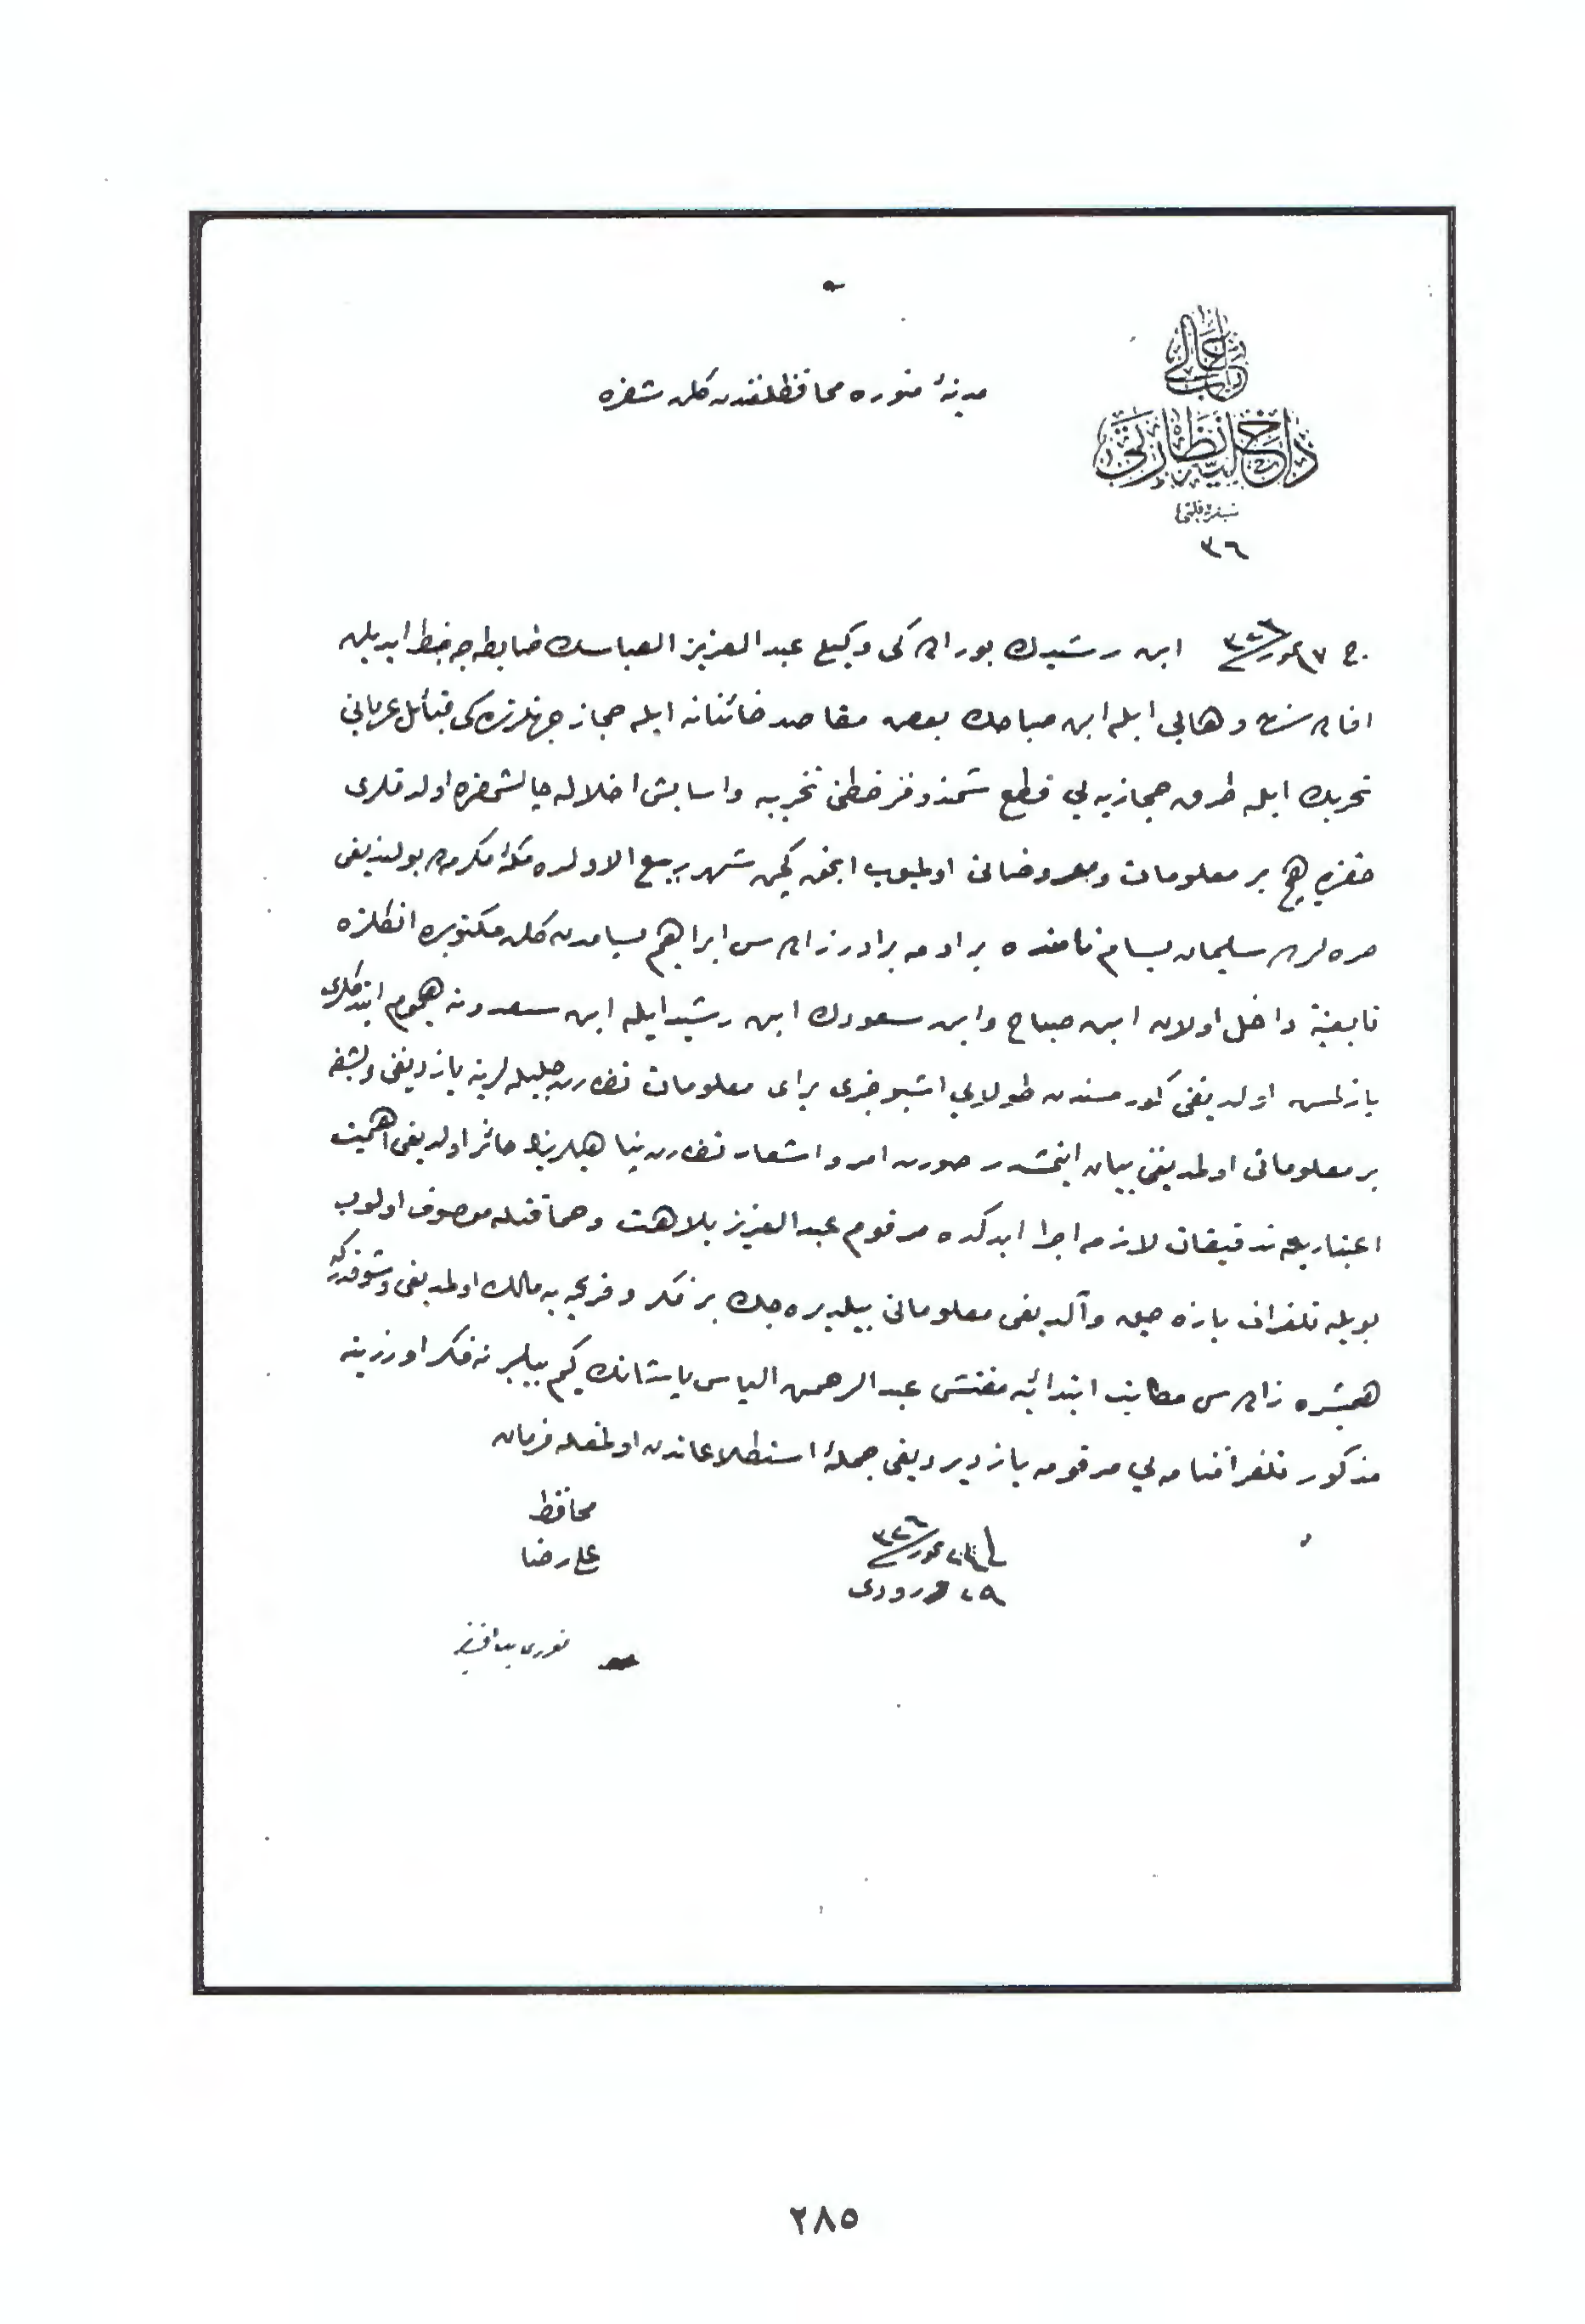 باب عالی
داخلیه نظارتی
شفره قلمی
٣٦
مدینهٔ منوره محافظلغندن کلن شفره
ج ١٧ تموز ٣٢٦ ابن رشیدك بوراده کی وکیلی عبد العزیز العباسك ضابطه جه ضبط ایدیلن
افاده سنده وهابی ایله ابن صباحك بعض مقاصد خائنانه ایله حجاز جهتلرنده کی قبائل عربانی
تحریك ایله طرق حجازیه یی قطع شمندوفر خطنی تخریبه واسایش اخلاله چالشمقده اولدقلری
حقنده هیچ بر معلومات ومعروضاتی اولمیوب انجق کچن شهر ربیع الاولده مکهٔ مکرمه ده بولندیغی
صره لرده سلیمان بسام نامنده بر ادمه برادر زاده سی ابراهیم بسامدن کلن مکتوبده انکلتره
تابعیته داخل اولان ابن صباح وابن سعودك ابن رشید ایله ابن سعدونه هجوم ایتدکلری
یازلمش اولدیغنی کورمسندن طولایی اشبو خبری برای معلومات نظارت جلیله لرینه یازدیغنی وبشقه
بر معلوماتی اولمدیغنی بیان ایتمشدر صورت امر واشعار نظارتپناهیلرینك حائز اولدیغی اهمیت
اعتباریله تدقیقات لازمه اجرا ایدلدکده مرقوم عبد العزیز بلاهت وحماقتله موصوف اولوب
بویله تلغراف یازه جق وآلدیغی معلوماتی بیلدیره جك بر فکر وقریحه یه مالك اولمدیغی
همشیره زاده سی مکاتب ابتدائیه مفتشی عبد الرحمن الیاس پاشانك کیم بیلیر نه فکر اوزرینه
مذکور تلغرافنامه یی مرقومه یازدیردیغی جملهٔ استطلاعاتدن اولمغله فرمان
تموز ٣٢٦
٢٩ ورودی
محافظ
علی رضا
نوری بك افندی
٢٨٥